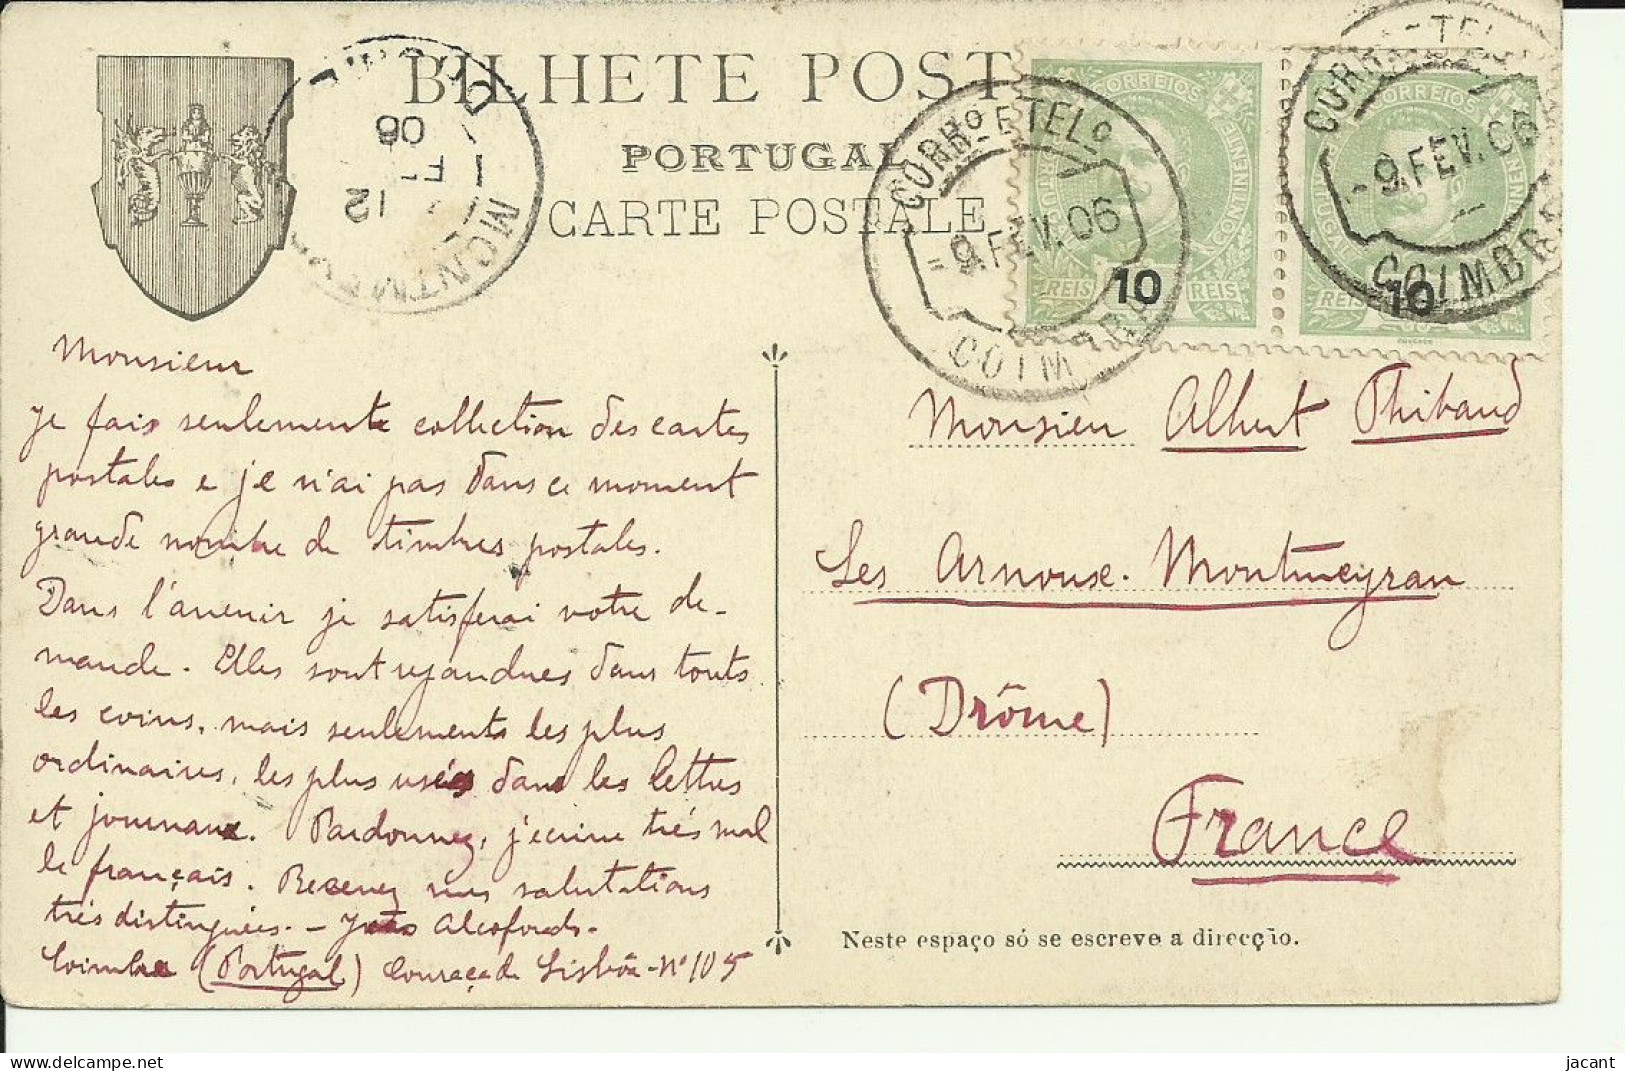 BILHETE POST
PORTUGAL
CARTE POSTALE
CORRO E TELO
9.FEV.06
COIMBRA
CORRO E TELO
9.FEV.06
COIMBRA
CORREIOS
PORTUGAL
CONTINENTE
REIS 10 REIS
CORREIOS
PORTUGAL
CONTINENTE
REIS 10
DROME
12
06
Monsieur
Je fais seulemente collection des cartes
postales e je n'ai pas dans ce moment
grande nombre de timbres postales.
Dans l'avenir je satisferai votre de-
mande. Elles sont rejandues dans touts
les coins, mais seulements les plus
ordinaires, les plus usées dans les lettres
et journaux. Pardonnez, j'ecrive trés mal
le français. Recevez mes salutations
trés distinguées. - Alcoforado.
Coimbra (Portugal) Couraça de Lisbôa - Nº 105
Monsieur Albert Thibaud
Les Arnoux. Montmeyran
(Drôme)
France
Neste espaço só se escreve a direcção.
jacant